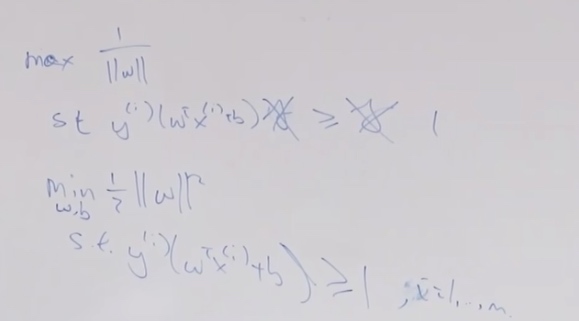 max 1/||w||
s.t. y^(i)(w^T x^(i)+b) ≥ 1
min_{w,b} 1/2 ||w||^2
s.t. y^(i)(w^T x^(i)+b) ≥ 1 , i=1,...,m